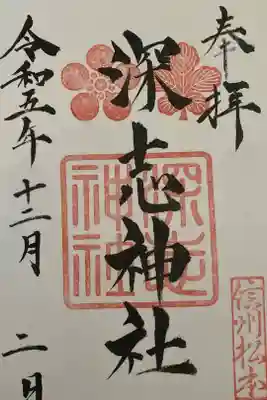 奉拝
信州松本
深志神社
深志
神社
令和五年十二月二日